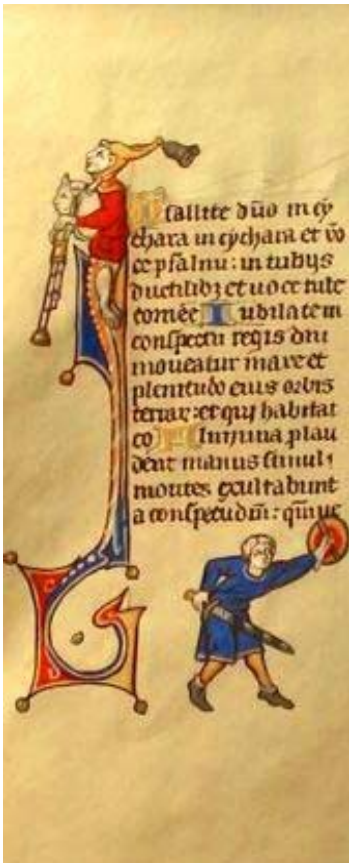 Psallite dño in cy
chara in cychara et vo
ce psalmi : in tubys
ductilibz et uoce tube
cornée Iubilate in
conspectu regis dni
moueatur mare et
plenitudo eius orbis
terrar : et qui habitat
eo Flumina plau
dent manus simul
montes exultabunt
a conspectu dm̄ : qm̄ ue